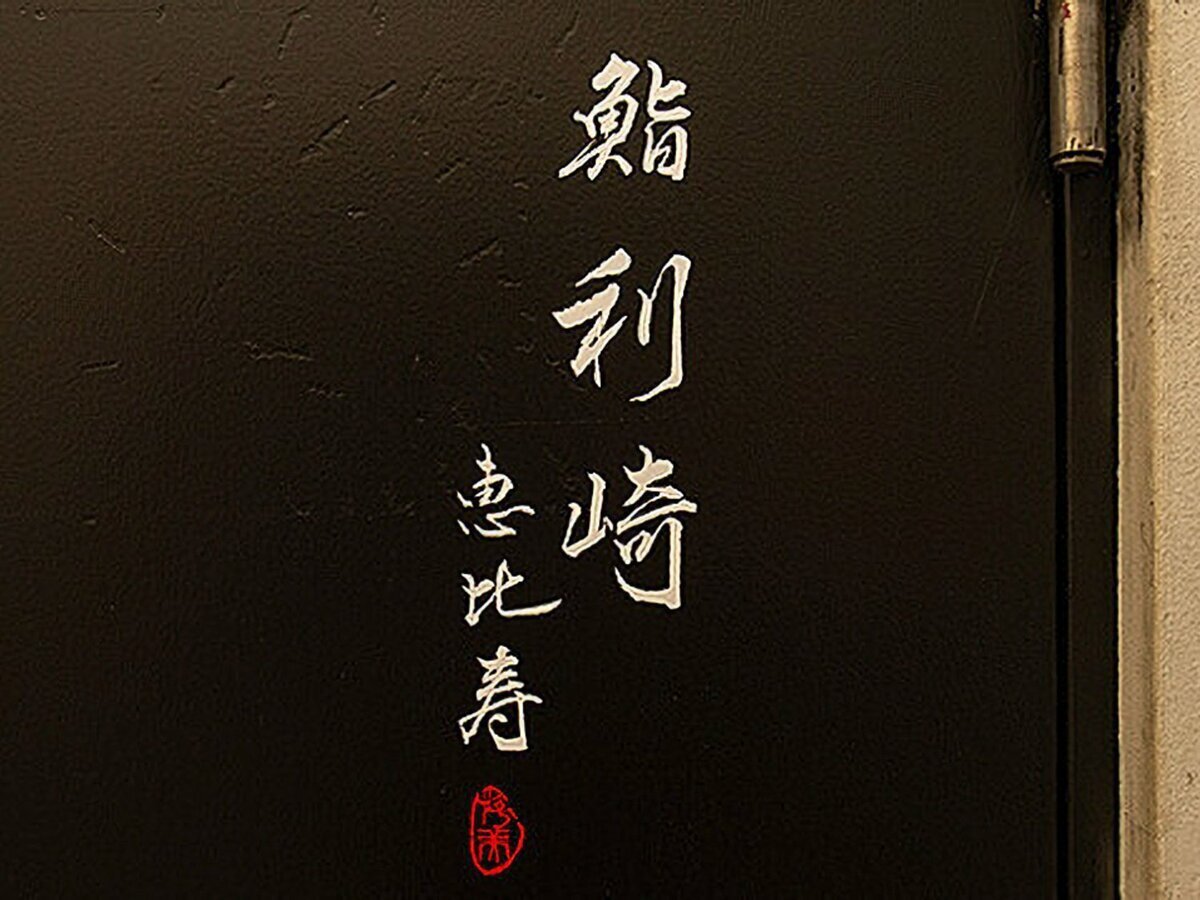 鮨利崎
恵比寿